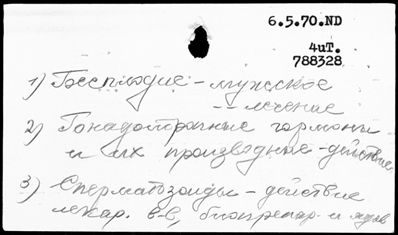 6.5.70.ND
4uT.
788328
1) Бесплодие - мужское
-- - лечение
2) Гонадотропные гормоны
и их производные - действие
3) Сперматозоиды - действие
лекар. в-в, биопрепар. и ядов